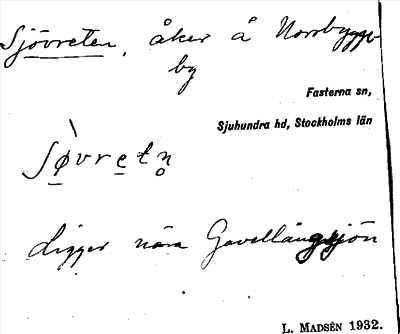 Sjövreten, åker å Norrbygge
by
Fasterna sn,
Sjuhundra hd, Stockholms län
Ligger nära Gavellångsjön
L. MADSÉN 1932.